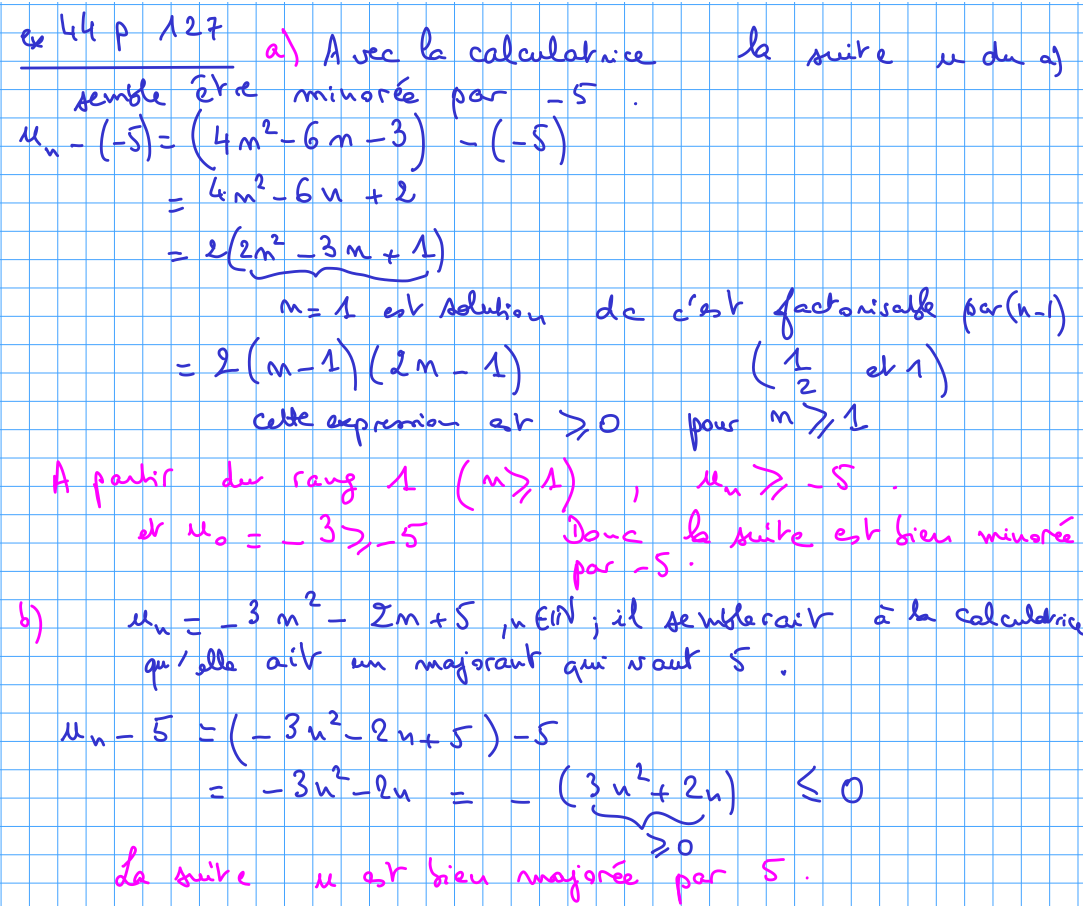 ex 44 p 127 a) Avec la calculatrice la suite u du a)
semble être minorée par -5.
u_n - (-5) = (4n² - 6n - 3) - (-5)
= 4n² - 6n + 2
= 2(2n² - 3n + 1)
n = 1 est solution dc c'est factorisable par (n-1)
= 2(n - 1)(2n - 1) (1/2 et 1)
cette expression est ⩾ 0 pour n ⩾ 1
A partir du rang 1 (n ⩾ 1), u_n ⩾ -5.
et u_0 = -3 ⩾ -5 Donc la suite est bien minorée
par -5.
b) u_n = -3n² - 2n + 5, n ∈ ℕ ; il semblerait à la calculatrice
qu'elle ait un majorant qui vaut 5.
u_n - 5 = (-3n² - 2n + 5) - 5
= -3n² - 2n = -(3n² + 2n) ≤ 0
⩾ 0
La suite u est bien majorée par 5.